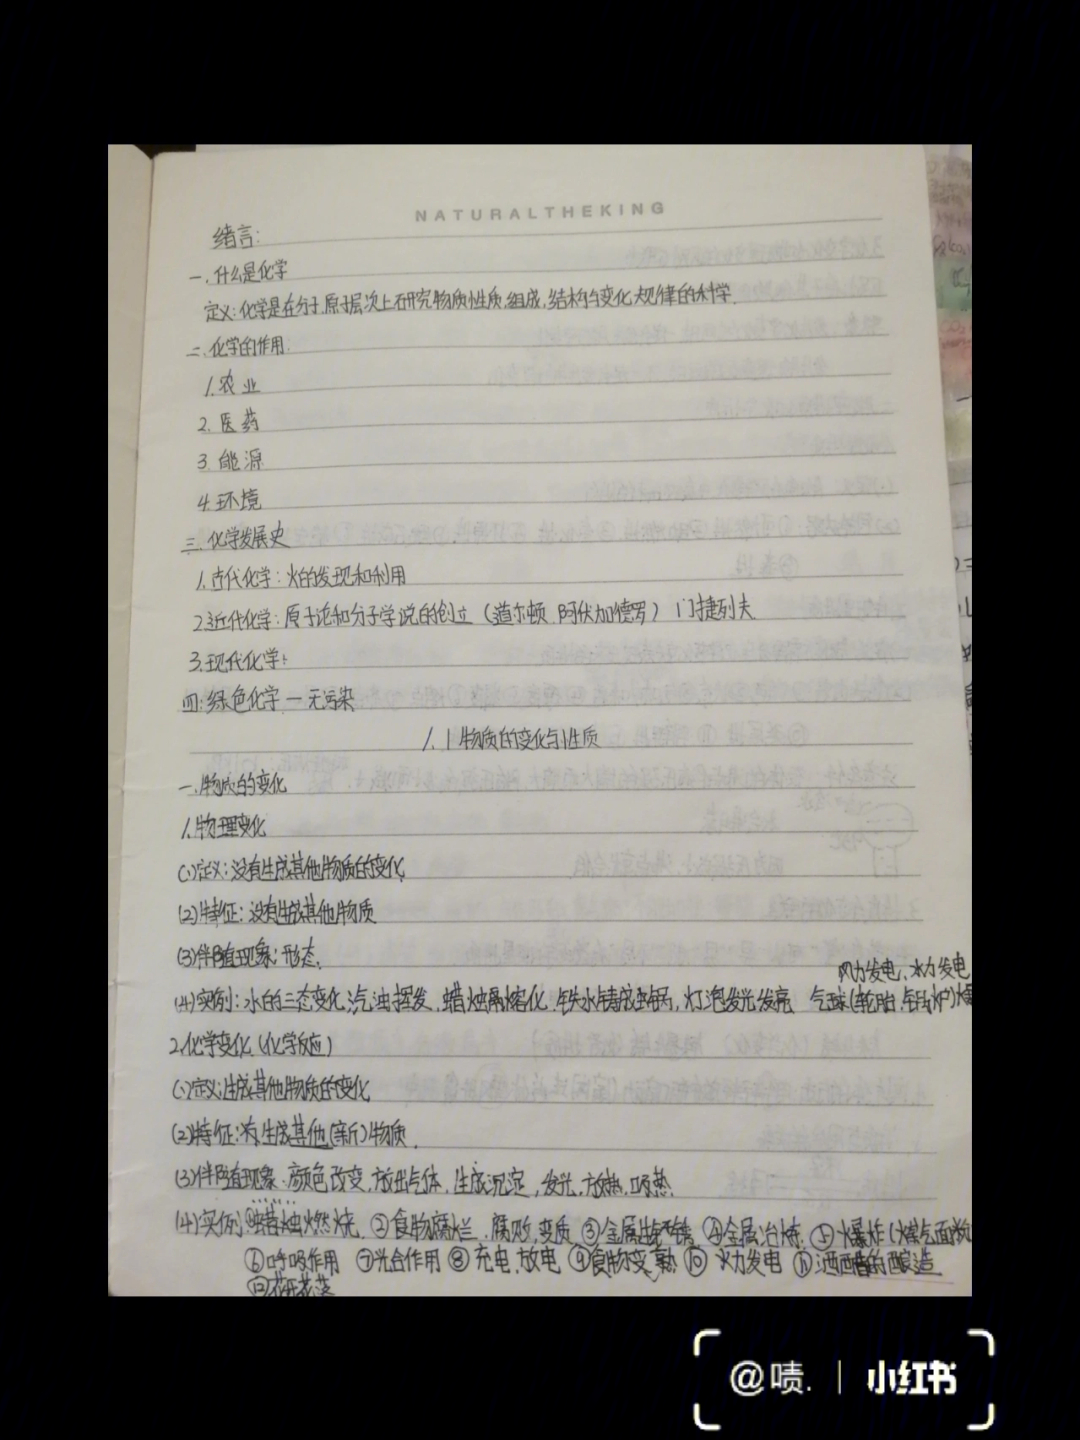 NATURALTHEKING
绪言:
一.什么是化学
定义:化学是在分子.原子层次上研究物质性质,组成,结构与变化规律的科学.
二.化学的作用.
1.农业
2.医药
3.能源
4.环境
三.化学发展史
1.古代化学:火的发现和利用
2.近代化学:原子论和分子学说的创立(道尔顿.阿伏加德罗)门捷列夫
3.现代化学:
四:绿色化学—无污染
1.1物质的变化与性质
一.物质的变化
1.物理变化
(1)定义:没有生成其他物质的变化
(2)特征:没有生成其他物质
(3)伴随现象:形态.
风力发电,水力发电
(4)实例:水的三态变化,汽油挥发,蜡烛熔化,铁水铸成锅,灯泡发光发亮 气球(轮胎,锅炉)
2.化学变化(化学反应)
(1)定义:生成其他物质的变化
(2)特征:有生成其他(新)物质.
(3)伴随现象:颜色改变,放出气体,生成沉淀,发光,放热,吸热.
(4)实例:①蜡烛燃烧 ②食物腐烂,腐败,变质 ③金属生锈 ④金属冶炼 ⑤爆炸(煤气面粉
⑥呼吸作用 ⑦光合作用 ⑧充电,放电 ⑨食物变熟 ⑩火力发电 ⑪酒醋的酿造
⑫花开花落
@啧. | 小红书